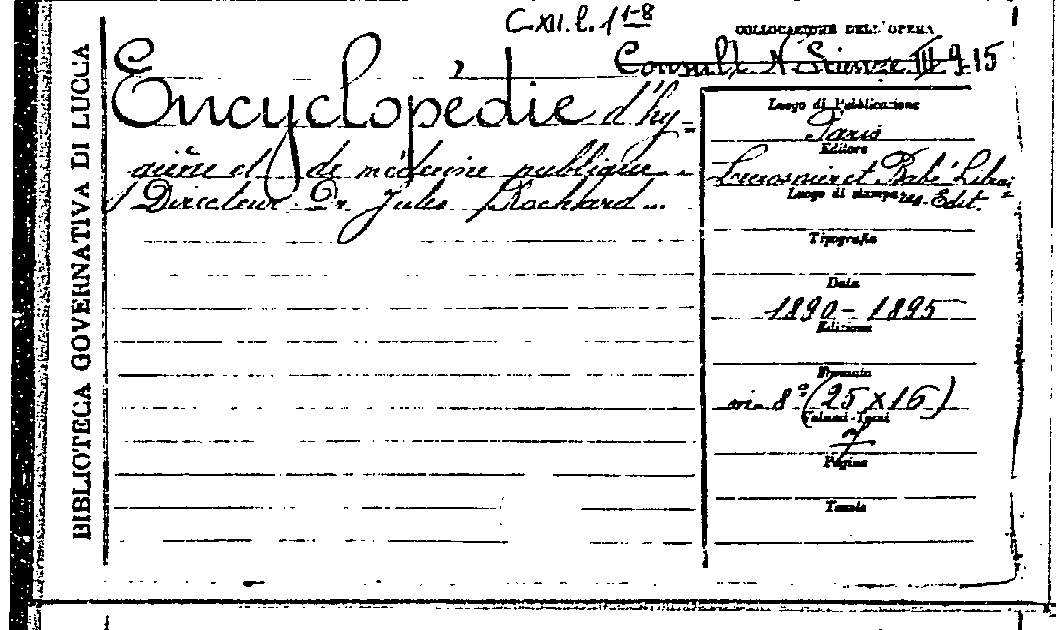 C.XII.l.1 1-8
COLLOCAZIONE DELL'OPERA
Consult. N Scienze III 9.15
BIBLIOTECA GOVERNATIVA DI LUCCA
Encyclopédie d'hy=
giène et de médecine publique..
Directeur Dr. Jules Rochard...
Luogo di Pubblicazione
Paris
Editore
Lecrosnier et Babé Librai=
res. Edit.
Luogo di stampa
Tipografia
Data
1890-1895
Edizione
Formato
in-8° (25x16)
Volumi-Tomi
7
Pagine
Tavole